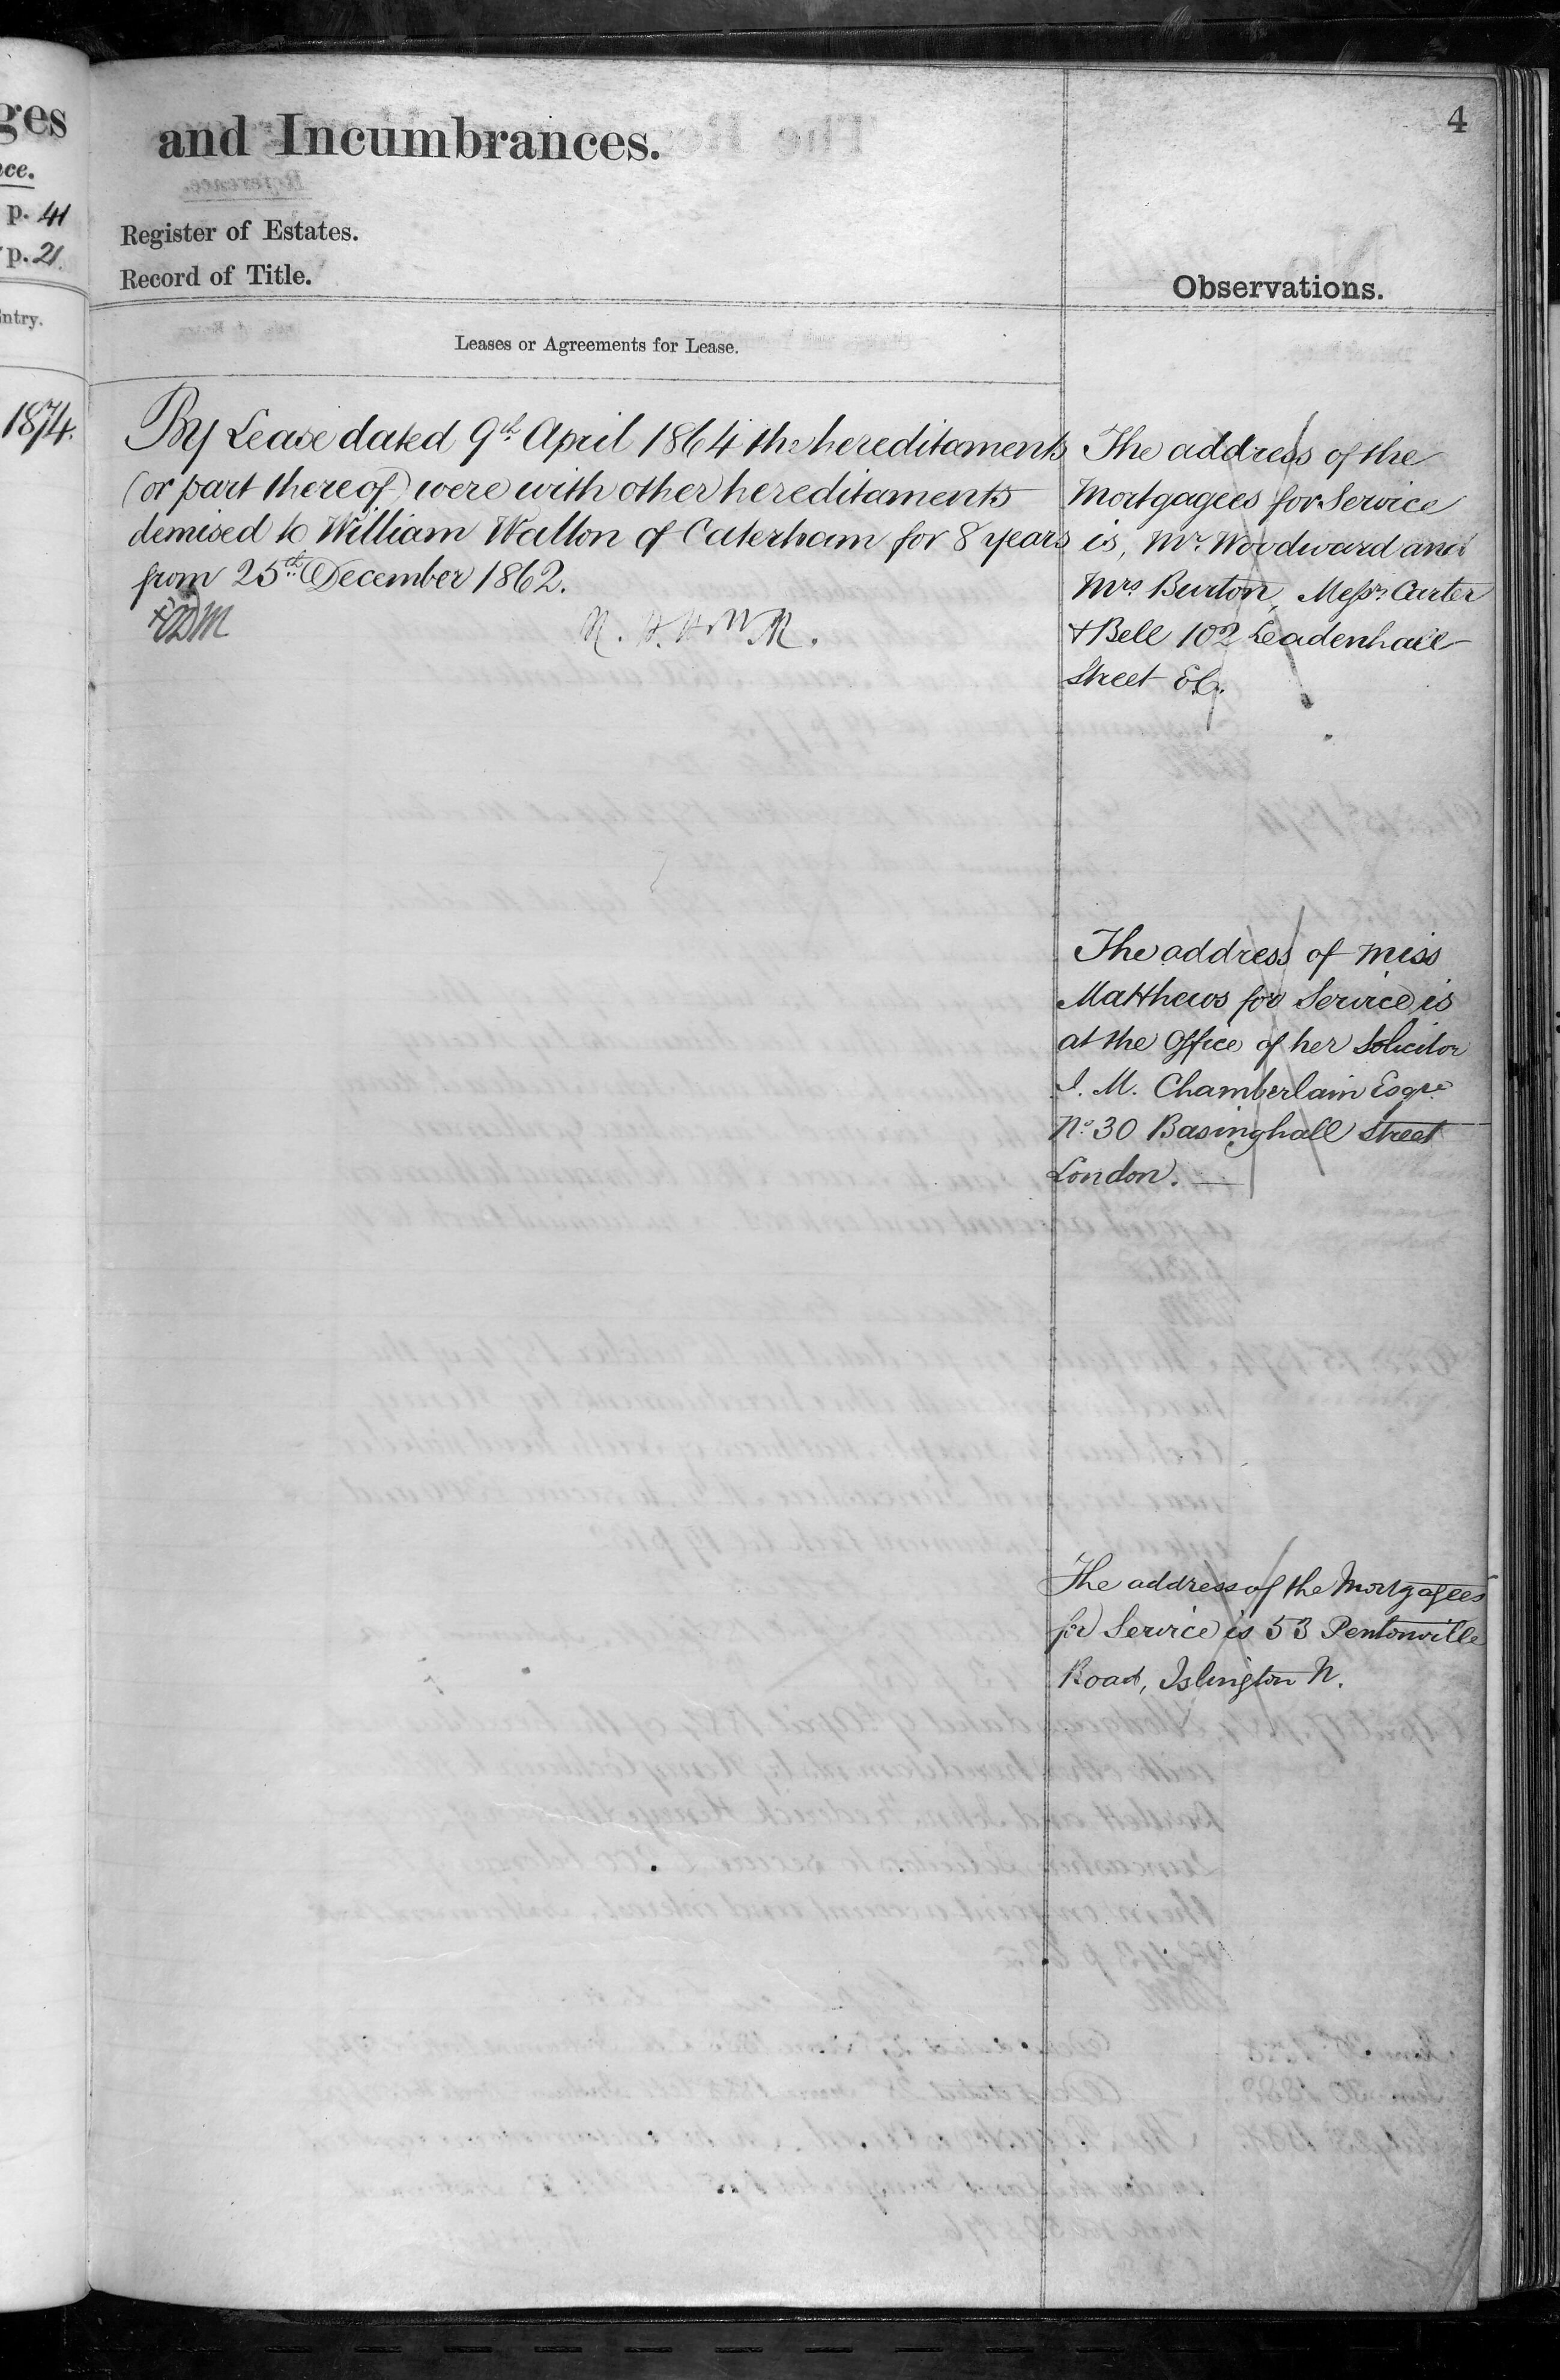 ges
ce.
p. 41
p. 21
Entry.
1874.
4
and Incumbrances.
Register of Estates.
Record of Title.
Leases or Agreements for Lease.
By Lease dated 9th April 1864 the hereditaments
(or part thereof) were with other hereditaments
demised to William Walton of Caterham for 8 years
from 25th December 1862.
Observations.
The address of the
Mortgagees for Service
is, Mr. Woodward and
Mrs Burton, Messrs Carter
& Bell 102 Leadenhall
Street E.C.
The address of Miss
Matthews for Service is
at the Office of her Solicitor
J. M. Chamberlain Esqre
No. 30 Basinghall Street
London.
The address of the Mortgagees
for Service is 53 Pentonville
Road, Islington N.